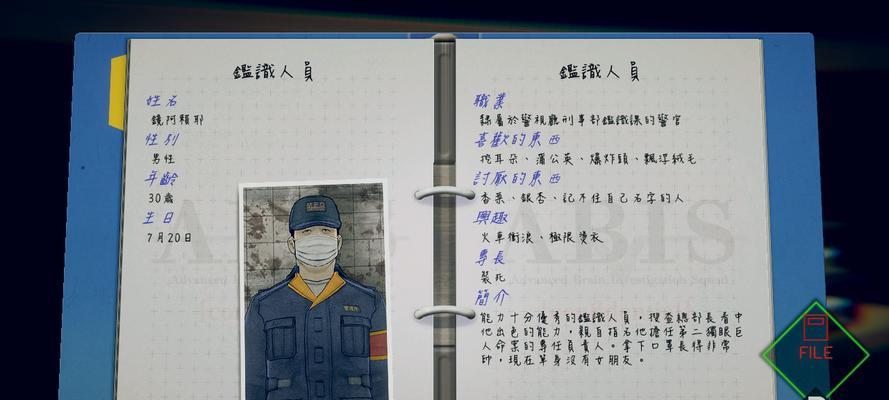 鑑識人員
姓名
鏡阿賴耶
性別
男性
年齡
30歲
生日
7月20日
M.P.D
鑑識人員
職業
隸屬於警視廳刑事部鑑識課的警官
喜歡的東西
挖耳朵、蒲公英、爆炸頭、飄浮絨毛
討厭的東西
香菜、銀杏、記不住自己名字的人
興趣
火車衝浪、極限燙衣
專長
裝死
簡介
能力十分優秀的鑑識人員，搜查總部長看中
他出色的能力，親自指名他擔任第二獨眼巨
人命案的專任負責人。拿下口罩長得非常
帥，現在單身沒有女朋友。
ABIS
Advanced Brain Investigation Squad
FILE